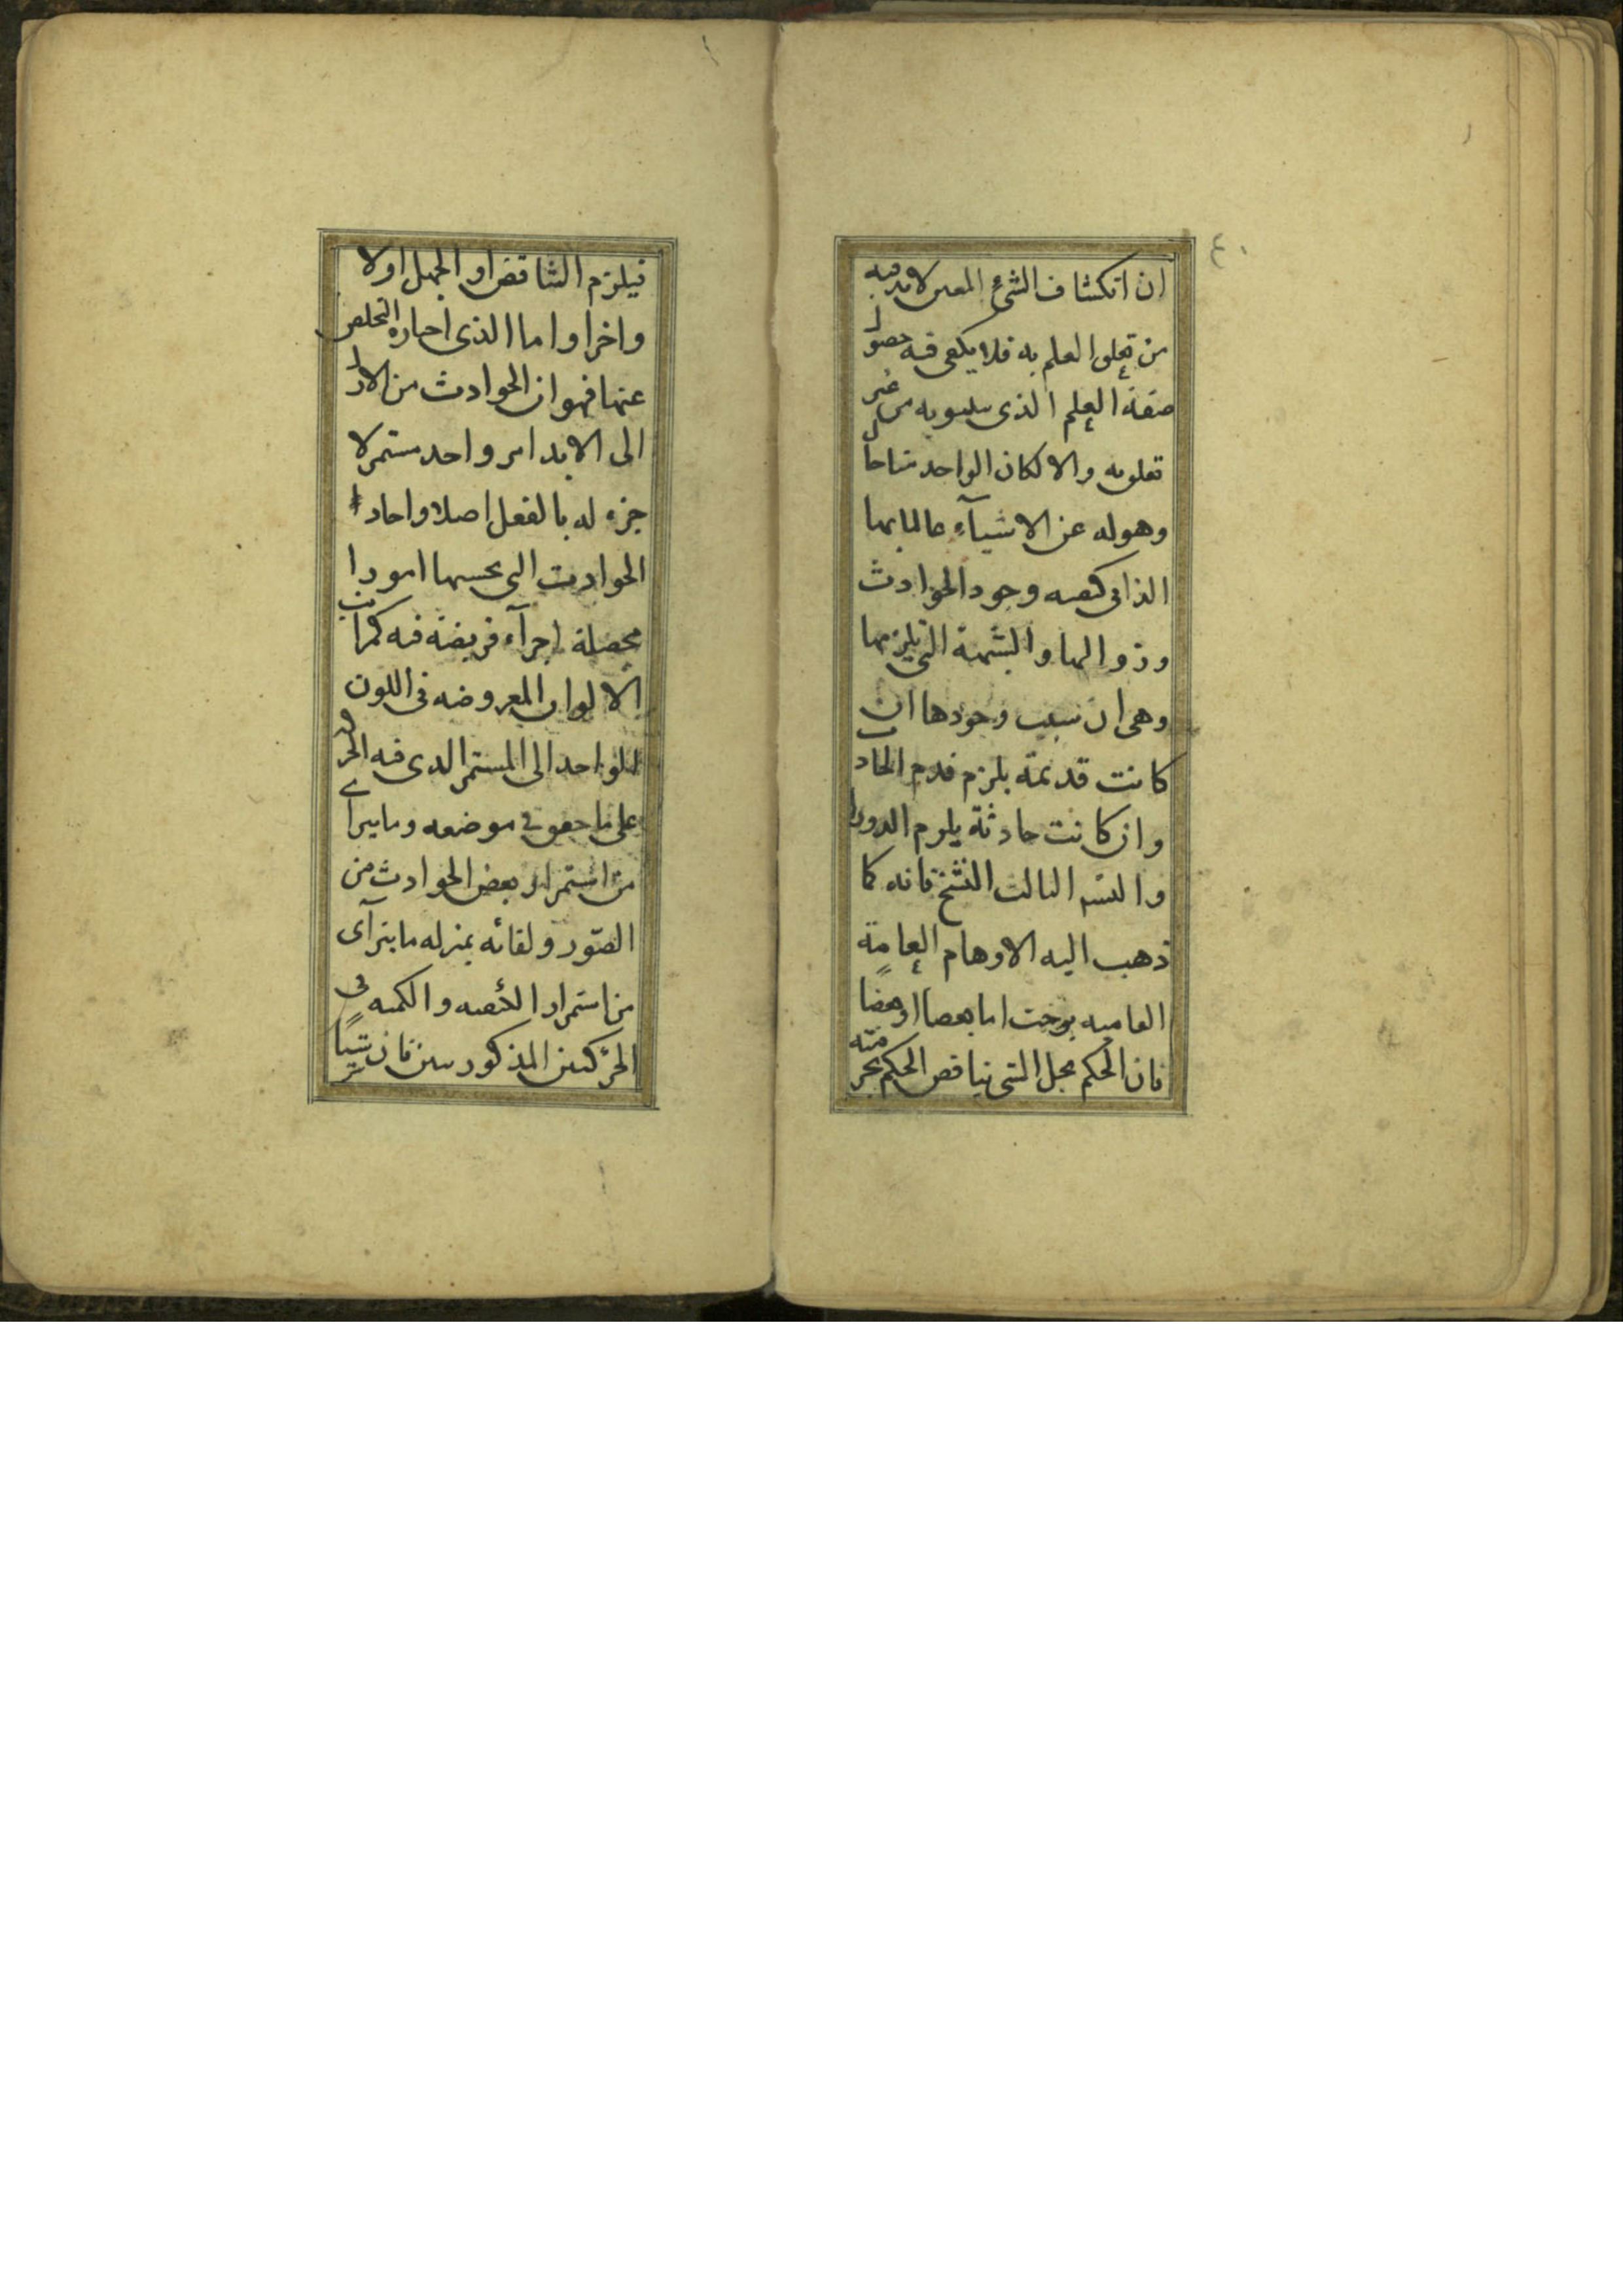 ٤٠
ان انكشاف الشئ المعين لابد فيه
من تعلق العلم به فلا يكفى فيه حصول
صفة العلم الذى من غير
تعلق به والا لكان الواحد منا حال
وهوله عن الاشيآء عالما بها
الذانى كيفيه وجود الحوادث
وزوالها والشبهة التى يلزمها
وهى ان سبب وجودها ان
كانت قديمة يلزم قدم الحادث
وان كانت حادثة يلزم الدور او
والتسم الثالث النسخ فانه كما
ذهب اليه الاوهام العامة
العاميه اما او
فان الحكم بحل الشى يناقض الحكم بحرمته
فيلزم التناقض او الجهل اولا
واخرا واما الذى احباره التخلص
عنها فهو ان الحوادث من الازل
الى الابد امر واحد مستمر لا
جزء له بالفعل اصلا واحاد
الحوادث التى تحسبها امورا
محصلة اجزآء فريضة فيه كمراتب
الالوان المعروضه فى اللون
الواحد الى المستمر الذى فيه الحركة
على ما حقق فى موضعه وما يترائ
من استمرار بعض الحوادث من
الصّور ولقائه بمنزله ما يترآى
من استمرار الكيفيه والكميه فى
الحركتين المذكورتين فان شيئًا